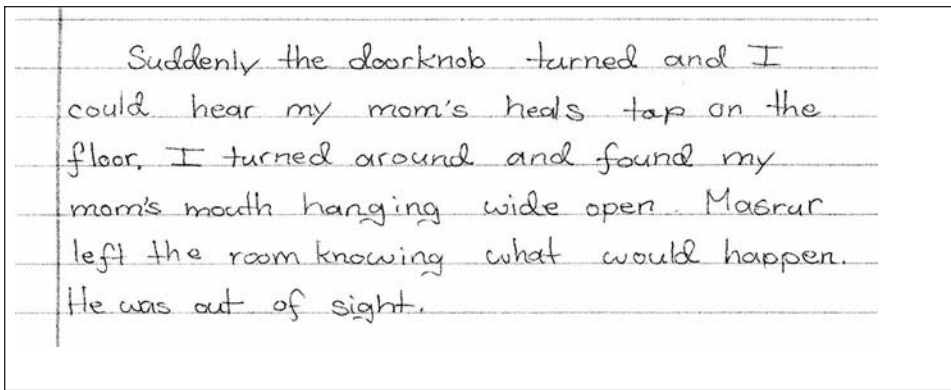 Suddenly the doorknob turned and I
could hear my mom's heals tap on the
floor. I turned around and found my
mom's mouth hanging wide open. Masrur
left the room knowing what would happen.
He was out of sight.